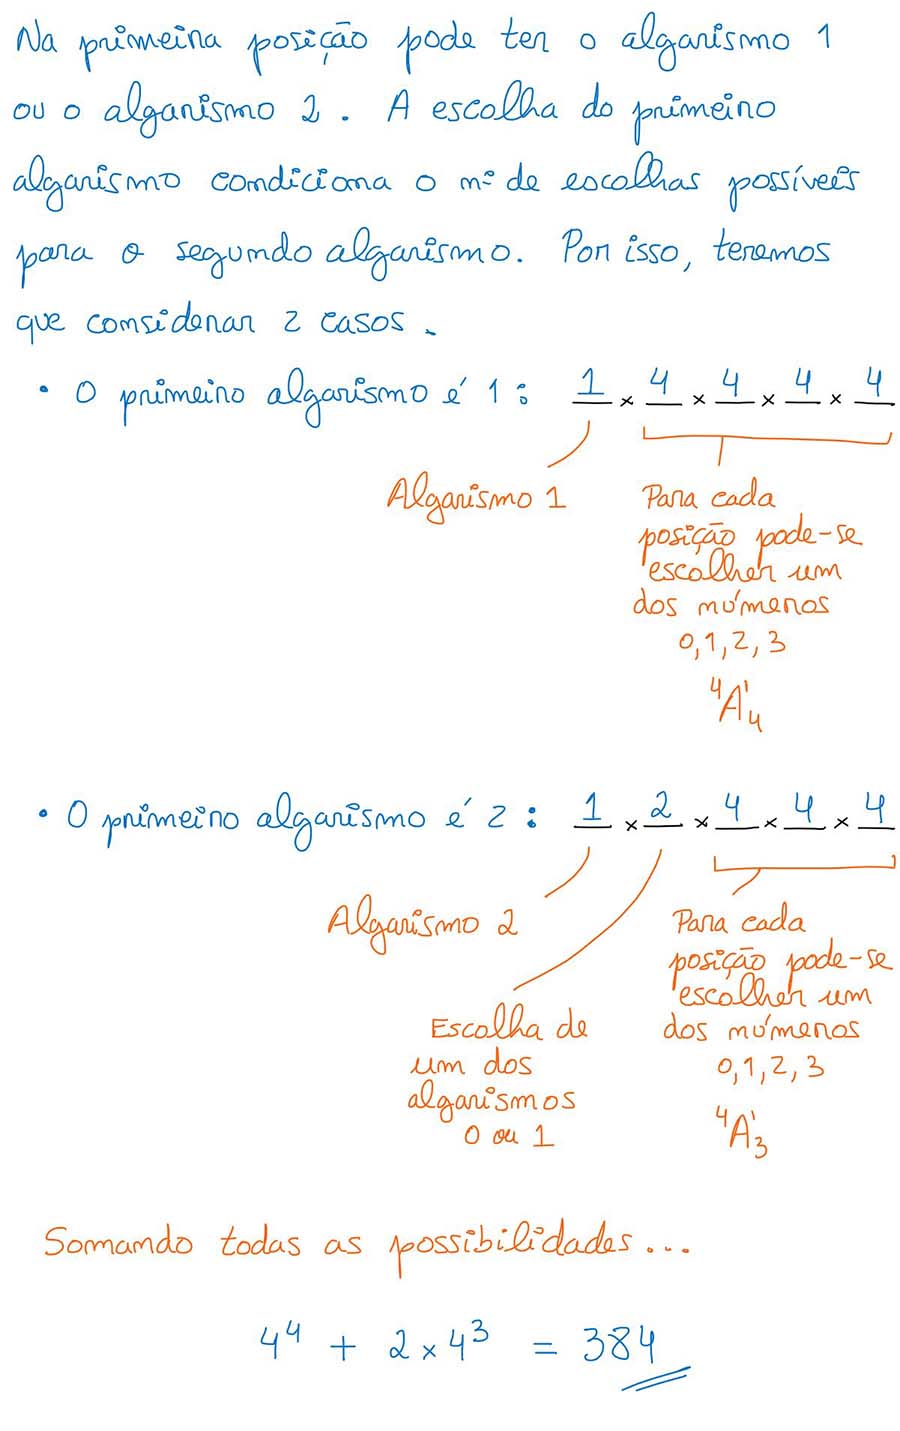 Na primeira posição pode ter o algarismo 1
ou o algarismo 2. A escolha do primeiro
algarismo condiciona o nº de escolhas possíveis
para o segundo algarismo. Por isso, teremos
que considerar 2 casos.
• O primeiro algarismo é 1: 1 × 4 × 4 × 4 × 4
Algarismo 1
Para cada
posição pode-se
escolher um
dos números
0, 1, 2, 3
⁴A'₄
• O primeiro algarismo é 2: 1 × 2 × 4 × 4 × 4
Algarismo 2
Escolha de
um dos
algarismos
0 ou 1
Para cada
posição pode-se
escolher um
dos números
0, 1, 2, 3
⁴A'₃
Somando todas as possibilidades...
4⁴ + 2 × 4³ = 384